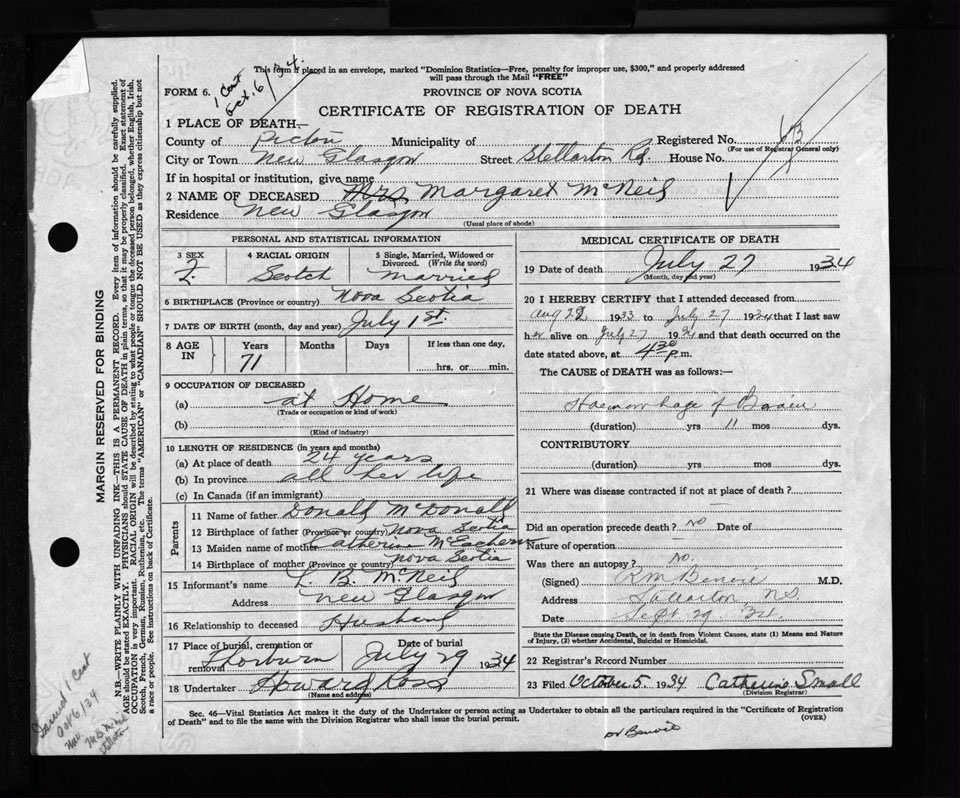 This form if placed in an envelope, marked "Dominion Statistics—Free, penalty for improper use, $300," and properly addressed
will pass through the Mail "FREE"
FORM 6.
1 Cert
Oct. 6/34.
PROVINCE OF NOVA SCOTIA
CERTIFICATE OF REGISTRATION OF DEATH
1 PLACE OF DEATH—
County of Pictou Municipality of Registered No. 63
(For use of Registrar General only)
City or Town New Glasgow Street Stellarton Rd. House No.
If in hospital or institution, give name
2 NAME OF DECEASED Mrs Margaret McNeil
Residence New Glasgow
(Usual place of abode)
PERSONAL AND STATISTICAL INFORMATION
3 SEX
F.
4 RACIAL ORIGIN
Scotch
5 Single, Married, Widowed or Divorced. (Write the word)
Married
6 BIRTHPLACE (Province or country) Nova Scotia
7 DATE OF BIRTH (month, day and year) July 1st.
8 AGE IN
Years Months Days If less than one day,
71 hrs. or min.
9 OCCUPATION OF DECEASED
(a) at Home
(Trade or occupation or kind of work)
(b)
(Kind of industry)
10 LENGTH OF RESIDENCE (in years and months)
(a) At place of death 24 years
(b) In province all her life
(c) In Canada (if an immigrant)
Parents
11 Name of father Donald McDonald
12 Birthplace of father (Province or country) Nova Scotia
13 Maiden name of mother Catherine McEachern
14 Birthplace of mother (Province or country) Nova Scotia
15 Informant's name L. B. McNeil
Address New Glasgow
16 Relationship to deceased Husband
17 Place of burial, cremation or removal Thorburn
Date of burial July 29 1934
18 Undertaker Howard Ross
(Name and address)
MEDICAL CERTIFICATE OF DEATH
19 Date of death July 27 1934
(Month, day and year)
20 I HEREBY CERTIFY that I attended deceased from
Aug 28 1933 to July 27 1934 that I last saw
her alive on July 27 1934 and that death occurred on
date stated above, at 4.30 p.m.
The CAUSE of DEATH was as follows:—
Haemorrhage of Brain
(duration) yrs 11 mos dys.
CONTRIBUTORY
(duration) yrs. mos. dys.
21 Where was disease contracted if not at place of death?
Did an operation precede death? No Date of
Nature of operation —
Was there an autopsy? No.
(Signed) R M Benvie M.D.
Address Stellarton N.S.
Date Sept. 29 '34.
State the Disease causing Death, or in death from Violent Causes, state (1) Means and Nature
of Injury, (2) whether Accidental, Suicidal or Homicidal.
22 Registrar's Record Number
23 Filed October 5 1934 Catherine Small
(Division Registrar)
Sec. 46—Vital Statistics Act makes it the duty of the Undertaker or person acting as Undertaker to obtain all the particulars required in the "Certificate of Registration
of Death" and to file the same with the Division Registrar who shall issue the burial permit.
(OVER)
Dr Benvie
MARGIN RESERVED FOR BINDING
N.B.—WRITE PLAINLY WITH UNFADING INK—THIS IS A PERMANENT RECORD. Every item of information should be carefully supplied.
AGE should be stated EXACTLY. PHYSICIANS should STATE CAUSE OF DEATH in plain terms, so that it may be properly classified. Exact statement of
OCCUPATION is very important. RACIAL ORIGIN will be described by stating to what people or tongue the deceased person belonged, whether English, Irish,
Scotch, French, German, Russian, Ruthenian, etc. The terms "AMERICAN" or "CANADIAN" SHOULD NOT BE USED as they express citizenship but not
a race or people. See instructions on back of Certificate.
Issued 1 Cert
Oct 6/34
Stellarton